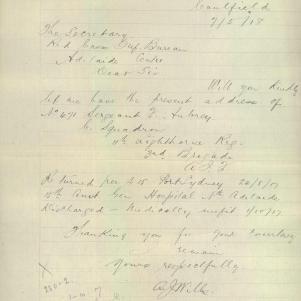 Caulfield
7/5/18
The Secretary
Red Cross Inf. Bureau
Adelaide Centre
Dear Sir
Will you kindly
let me have the present address of
No 671 Sergeant F. Aubrey
C. Squadron
11th Lighthorse Reg.
3rd Brigade
A.I.F
Returned per A 15 Port Sydney
15th Aust Gen Hospital Nth Adelaide
Discharged - Medically unfit
Thanking you for your courtesy
remain
Yours respectfully
A.J. Wills